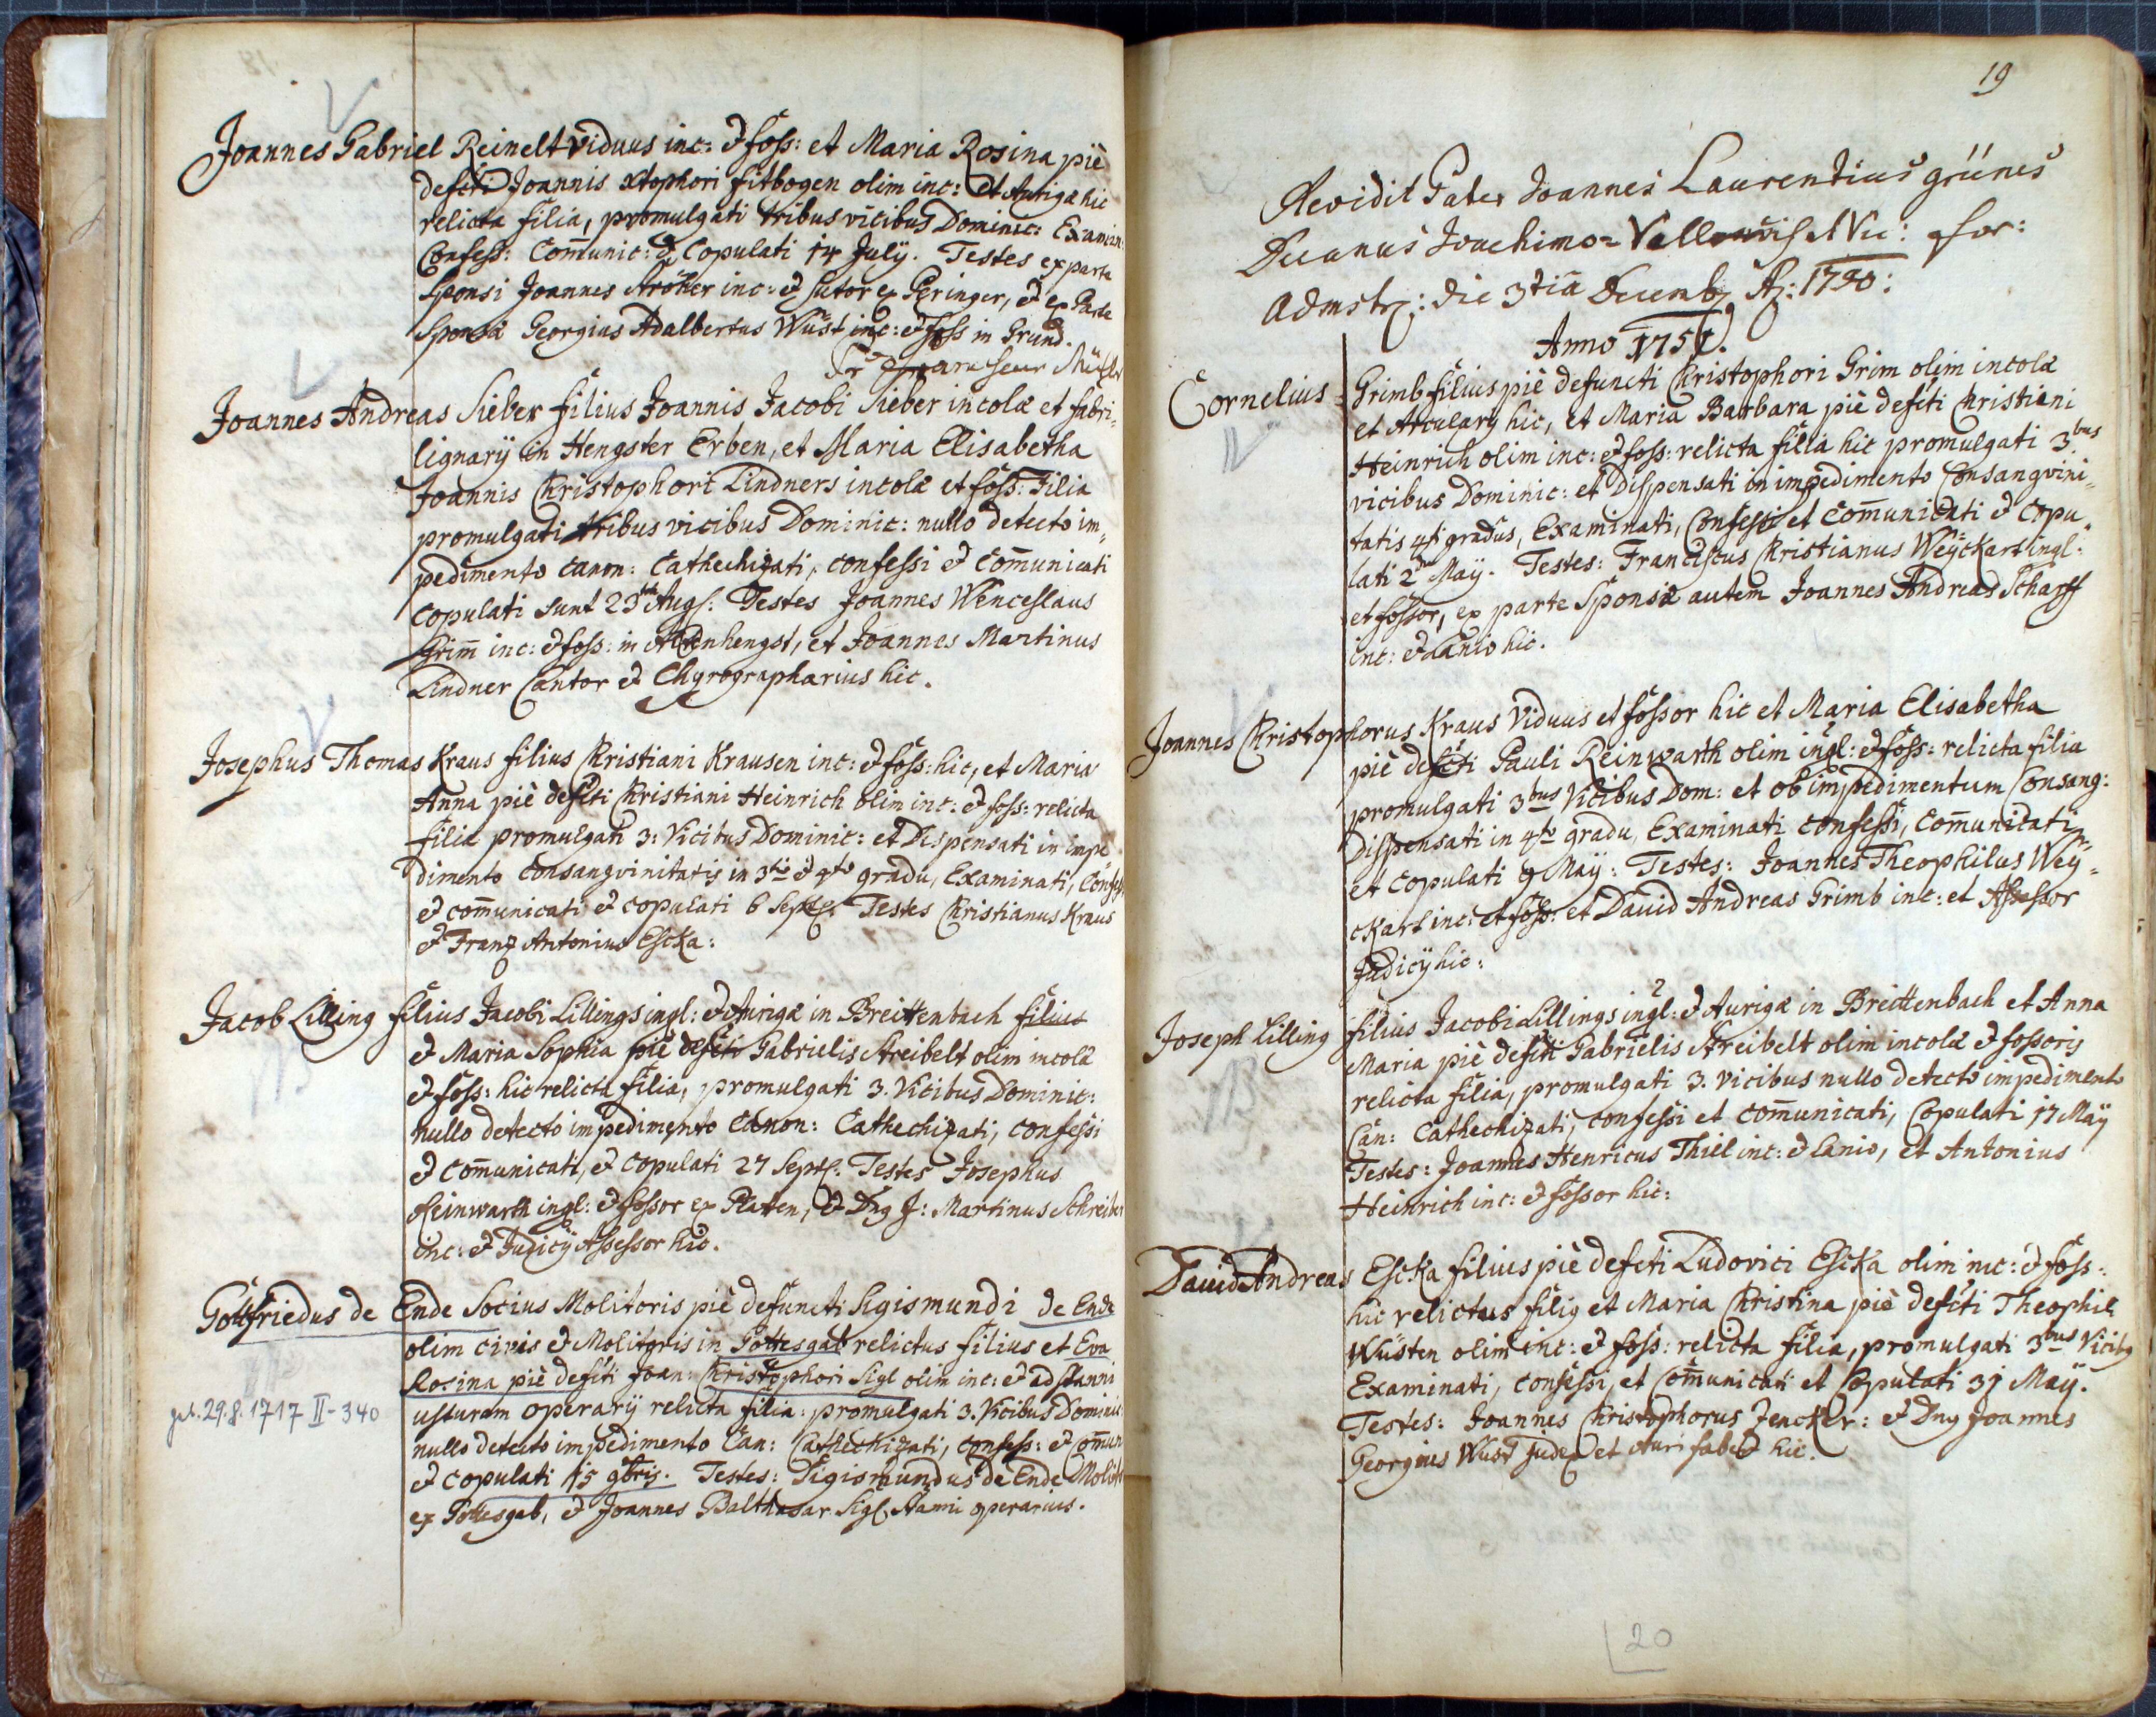 Joannes Gabriel Reinelt Viduus inc: & foss: et Maria Rosina piè
defcti Joannis Xtophori fitbogen olim inc: et Aurigæ hic
relicta filia, promulgati tribus vicibus Dominic: Examin:
Confess: Com̄unic: & Copulati 14 July. Testes ex parte
Sponsi Joannes Ströher inc: & Sutor ex Peringer, & ex Parte
Sponsæ Georgius Adalbertus Wüst inc: & foss in Grund.
Joannes Andreas Sieber filius Joannis Jacobi Sieber incolæ et fabri
lignarÿ in Hengster Erben, et Maria Elisabetha
Joannis Christophori Lindners incolæ et foss: Filia
promulgati tribus vicibus Dominic: nullo detecto im„
pedimento canon: Cathechizati, confessi & com̄unicati
copulati sunt 23 Aug: Testes Joannes Wenceslaus
Grim̄ inc: & foss: in Altenhengst, et Joannes Martinus
Lindner Cantor & Chyrographarius hic.
Josephus Thomas Kraus filius Christiani Krausen inc: & foss: hic, et Maria
Anna piè defcti Christiani Heinrich olim inc: & foss: relicta
filia promulgati 3: Vicibus Dominic: et Dispensati in impe„
dimento consangvinitatis in 3tio & 4to gradu, Examinati, Confess,
& com̄unicati & copulati 6 Sept: Testes Christianus Kraus
& Franz Antonius Escka:
Jacob Lilling filius Jacobi Lillings inql: & Aurigæ in Breittenbach filius
& Maria Sophia piè defcti Gabrielis Streibelt olim incolæ
& foss: hic relicta filia, promulgati 3. Vicibus Dominic:
nullo detecto impedimento canon: Cathechizati, confessi
& com̄unicati, & copulati 27 Sept: Testes Josephus
Reinwarth inql: & fossor ex Platten, & Dng J: Martinus Schreiber
inc: & Judicÿ Assessor hic.
Gottfriedus de Ende Socius Molitoris piè defuncti Sigismundi de Ende
olim civis & Molitoris in Gottesgab relictus filius et Eva
Rosina piè defcti Joan: Christophori Sigl olim inc: & ad stanni
usturam operarÿ relicta filia: promulgati 3. Vicibus Dominic:
get. 29.8.1717 II-340
nullo detecto impedimento Can: Cathechizati, confess: & com̄un
& copulati 15 9bris. Testes: Sigismundus de Ende Molit
ex Gottesgab, & Joannes Balthasar Sigl Stam̄i operarius.
19
Revidit Pater Joannes Laurentius grünes
Decanus Joachimo= Vallensis et Vic: for:
Admstr: die 3tia Decemb A: 1750:
Anno 1751.
Cornelius Grimb filius piè defuncti Christophori Grim olim incolæ
et Arculary hic, et Maria Barbara piè defcti Christiani
Heinrich olim inc: & foss: relicta filia hic promulgati 3.bus
vicibus Dominic: et Dispensati in impedimento Consangvini„
tatis 4ti gradus, Examinati, Confessi et Com̄unicati & Copu„
lati 2 Maÿ. Testes: Franciscus Christianus Weÿckart inql:
et fossor, ex parte Sponsæ autem Joannes Andreas Scharff
inc: & Lanio hic.
Joannes Christophorus Kraus Viduus et fossor hic et Maria Elisabetha
piè defcti Pauli Reinwarth olim inql: & foss: relicta filia
promulgati 3bus Vicibus Dom: et ob impedimentum Consang:
Dispensati in 4to gradu, Examinati confessi, Com̄unicati
et Copulati 9 Maÿ: Testes: Joannes Theophilus Weÿ=
ckart inc: et foss: et David Andreas Grimb inc: et Assessor
Judicÿ hic:
Joseph Lilling filius Jacobi Lillings inql: & Aurigæ in Breittenbach et Anna
Maria piè defcti Gabrielis Streibelt olim incolæ & fossoris
relicta filia, promulgati 3. vicibus nullo detecto impedimento
Can: Cathechizati, confessi et com̄unicati, Copulati 17 Maÿ
Testes: Joannes Henricus Thiel inc: & Lanio, et Antonius
Heinrich inc: & fossor hic:
David Andreas Escka filius piè defcti Ludovici Escka olim inc: & foss:
hic relictus filig et Maria Christina piè defcti Theophil
Wüsten olim inc: & foss: relicta filia, promulgati 3bus Vicibg
Examinati, confessi, et Com̄unicati et Copulati 31 Maÿ.
Testes: Joannes Christophorus Jencker: & Dng Joannes
Georgius Wüst Judex et Aurifaber hic.
20